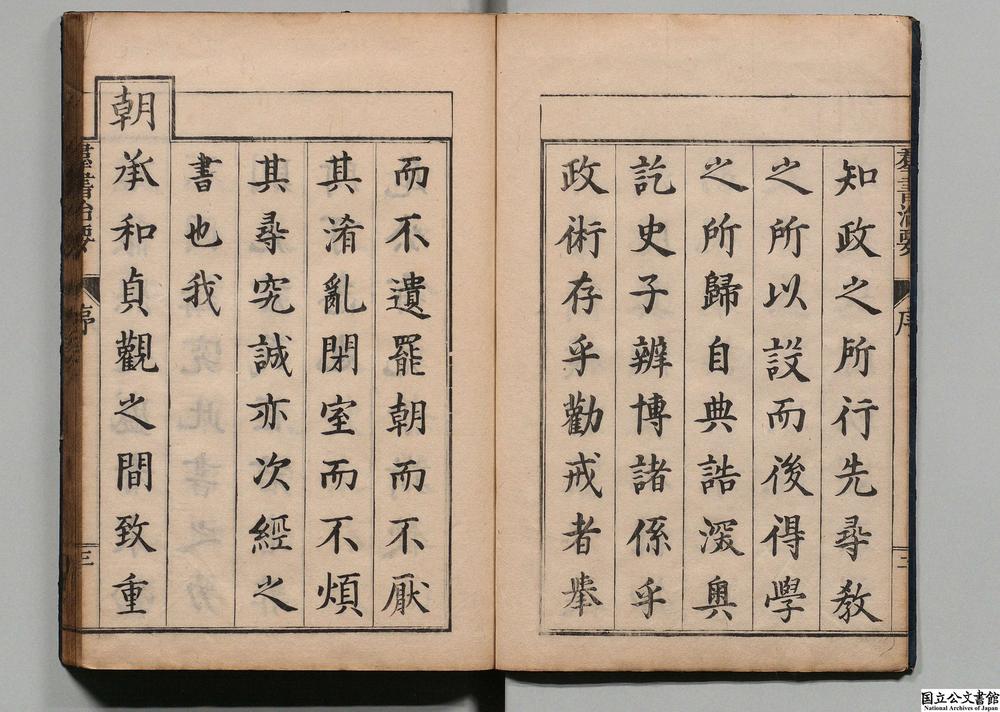 知政之所行先尋教
之所以設而後得學
之所歸自典誥深奧
訖史子辨博諸係乎
政術存乎勸戒者舉
羣書治要
序
二
而不遺罷朝而不厭
其淆亂閉室而不煩
其尋究誠亦次經之
書也我
朝
承和貞觀之間致重
羣書治要
序
三
国立公文書館
National Archives of Japan